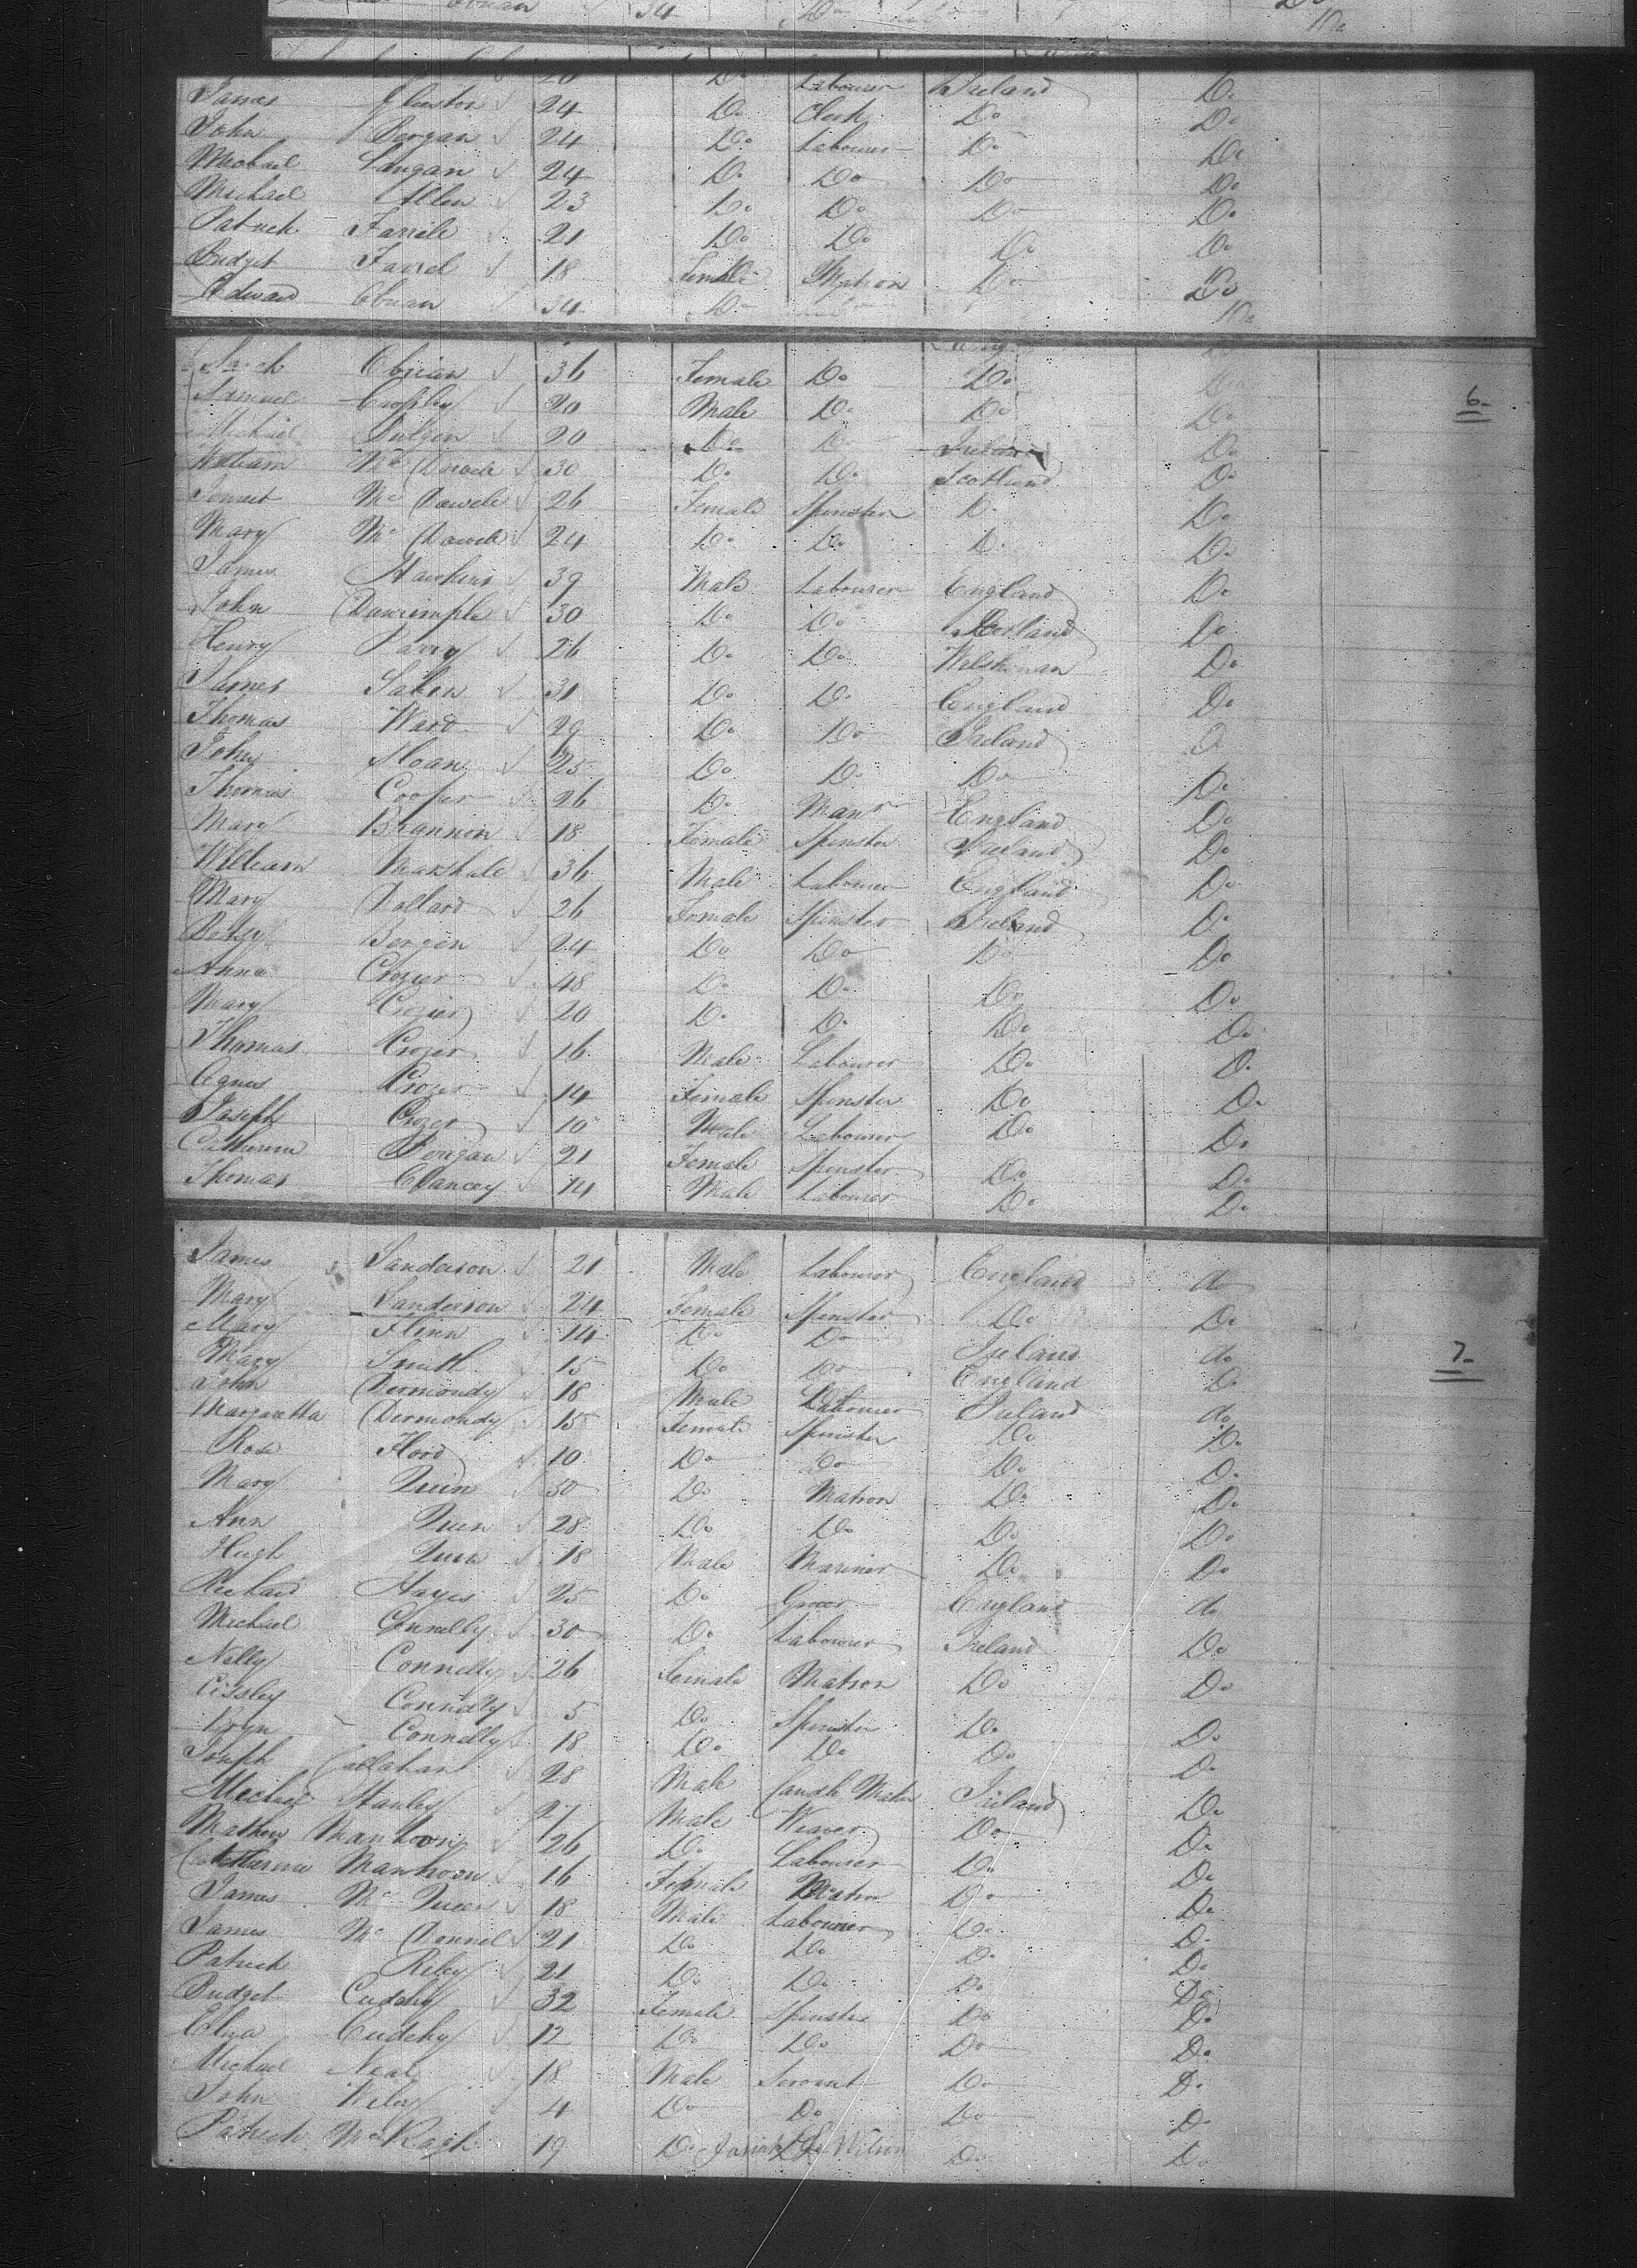 Obrian 34 Do
20 Do Labourer Ireland Do
James Sleuston 24 Do Clerk Do Do
John Bergan 24 Do Labourer Do Do
Michael Langan 24 Do Do Do Do
Michael Allen 23 Do Do Do Do
Patrick Farrele 21 Do Do Do Do
Bridget Farrel 18 Female Matron Do Do
Edward Obrian 34 Do Do
Sarah Obrian 36 Female Do Do Do
Samuel Cropley 20 Male Do Do Do
6
Michael Dulgen 20 Do Do Ireland Do
William Mc Dowele 30 Do Do Scotland Do
Jennet Mc Dowele 26 Female Spinster Do Do
Mary Mc Dowele 24 Do Do Do Do
James Hawkins 39 Male Labourer England Do
John Dawrimple 30 Do Do Scotland Do
Henry Parry 26 Do Do Welshman Do
James Saken 31 Do Do England Do
Thomas Ward 29 Do Do Ireland Do
John Sloan 25 Do Do Do Do
Thomas Cooper 26 Do Manr England Do
Mary Brannon 18 Female Spinster Ireland Do
William Marshale 36 Male Labourer England Do
Mary Dollard 26 Female Spinster Ireland Do
Betsy Bergen 24 Do Do Do Do
Anna Crozier 48 Do Do Do Do
Mary Crozier 20 Do Do Do Do
Thomas Crozer 16 Male Labourer Do Do
Agnes Crozer 14 Female Spinster Do Do
Joseph Crozer 10 Male Labourer Do Do
Catherine Berigan 21 Female Spinster Do Do
Thomas Clancey 14 Male Labourer Do Do
James Sanderson 21 Male Labourer England do
Mary Sanderson 24 Female Spinster Do Do
Mary Flinn 14 Do Do Ireland do
7
Mary Smith 15 Do Do England Do
John Dermondy 18 Male Labourer Ireland do
Margaretta Dermondy 15 Female Spinster Do Do
Rose Flood 10 Do Do Do Do
Mary Quin 50 Do Matron Do Do
Ann Quen 28 Do Do Do Do
Hugh Quin 18 Male Mariner Do Do
Richard Hayes 25 Do Grocer England do
Michael Connelly 30 Do Labourer Ireland Do
Nelly Connelly 26 Female Matron Do Do
Cissley Connelly 5 Do Spinster Do Do
Connelly 18 Do Do Do Do
Joseph Callahan 28 Male Candle Maker Ireland Do
Michael Stanley 27 Male Weaver Do Do
Mathew Manhoon 26 Do Labourer Do Do
Catherine Manhoon 16 Female Matron Do Do
James Mc Queen 18 Male Labourer Do Do
James Mc Donnel 21 Do Do Do Do
Patrick Riley 21 Do Do Do Do
Bridget Cudehy 32 Female Spinster Do Do
Eliza Cudehy 12 Do Do Do Do
Michael Neal 18 Male Servant Do Do
John Wiley 4 Do Do Do Do
Patrick Mc Kagh 19 Do Josiah L. Wilson Do Do